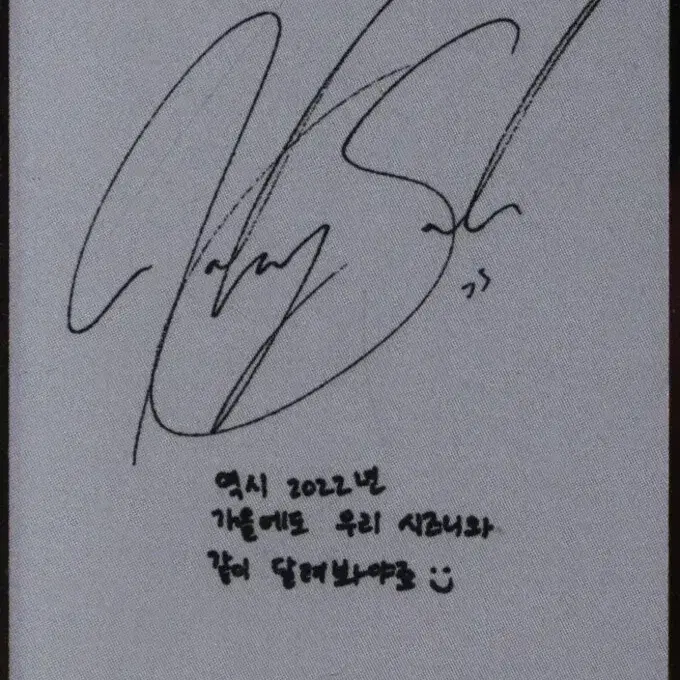 역시 2022년
가을에도 우리 시즈니와
같이 달려봐야죠 :)